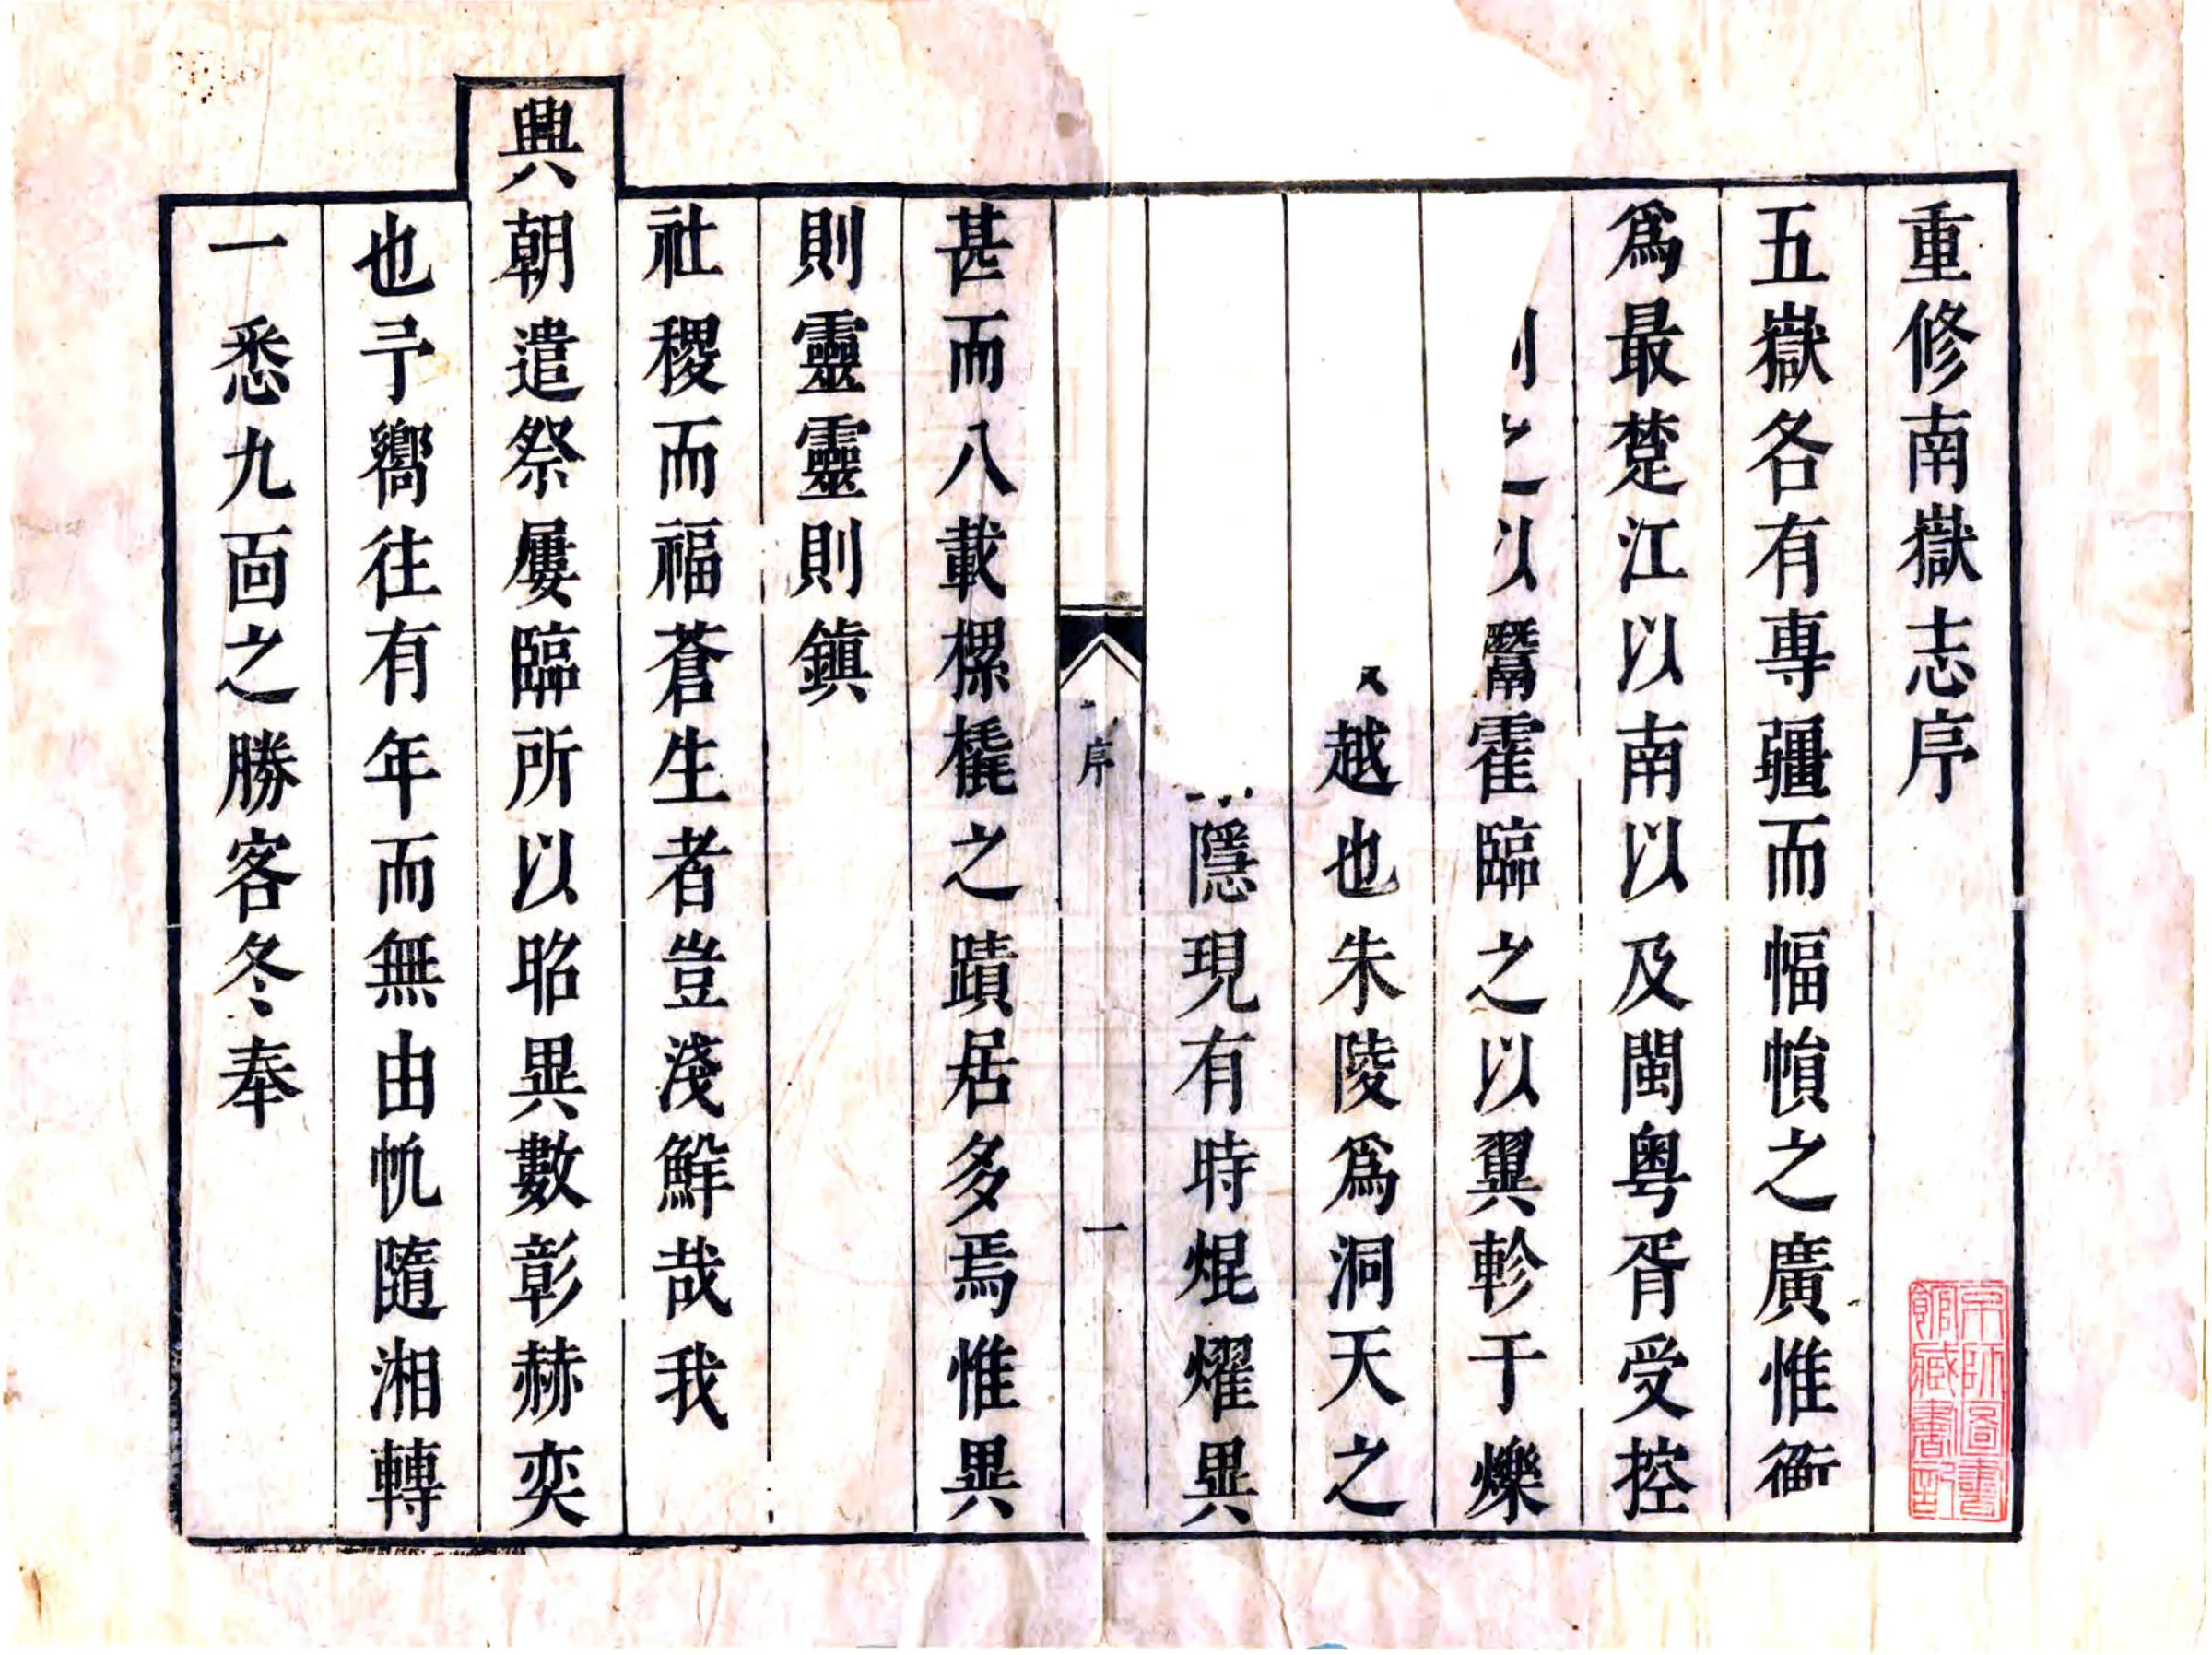 重修南嶽志序
五嶽各有專疆而幅幀之廣惟衡
爲最楚江以南以及閩粤胥受控
之以霍臨之以翼軫于爍
越也朱陵爲洞天之
隱現有時焜燿異
序 一
甚而八載樏橇之蹟居多焉惟異
則靈靈則鎮
社稷而福蒼生者豈淺鮮哉我
興朝遣祭屢臨所以昭異數彰赫奕
也予嚮往有年而無由帆隨湘轉
一悉九面之勝客冬奉
京師圖書館藏書記